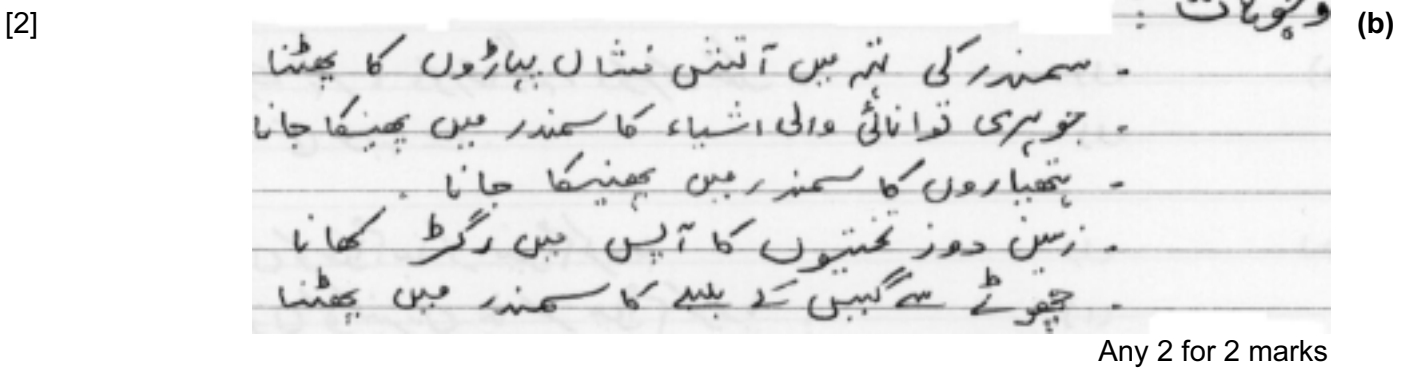 (b) وجوہات : [2]
- سمندر کی تہہ میں آتش فشاں پہاڑوں کا پھٹنا
- جوہری توانائی والی اشیاء کا سمندر میں پھینکا جانا
- ہتھیاروں کا سمندر میں پھینکا جانا .
- زمین دوز تختوں کا آپس میں رگڑ کھانا
- چھوٹے سے گیس کے بلبلے کا سمندر میں پھٹنا
Any 2 for 2 marks